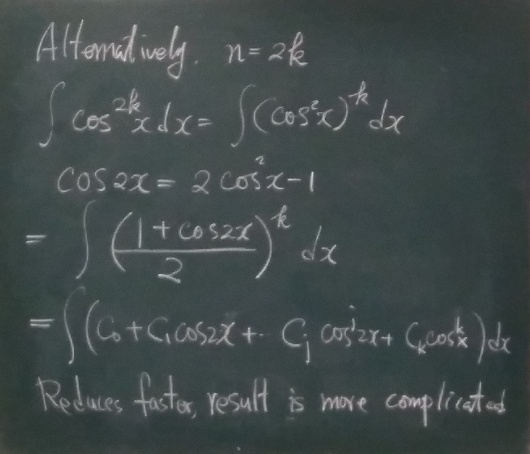 Alternatively. n = 2k
∫ cos^{2k}x dx = ∫ (cos²x)^k dx
cos 2x = 2 cos²x - 1
= ∫ ((1 + cos2x)/2)^k dx
= ∫ (C₀ + C₁ cos2x + ·· C_j cos^j 2x + C_k cos^k x) dx
Reduces faster, result is more complicated